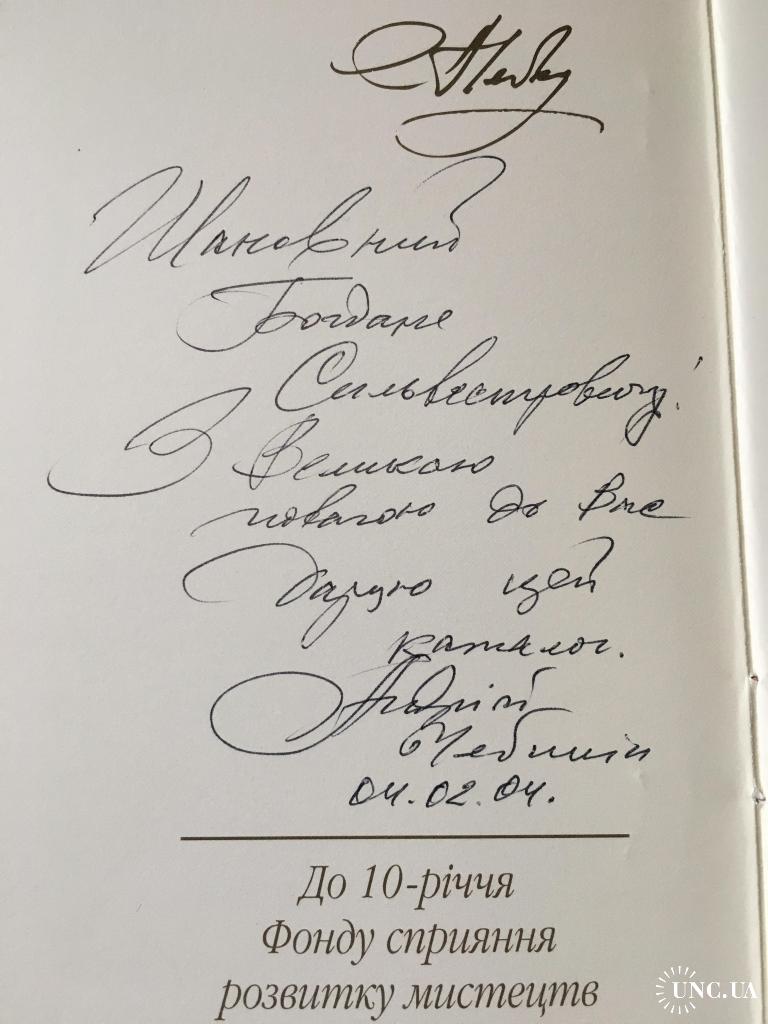 Шановний
Богдане
Сильвестровичу!
З Великою
повагою до Вас
дарую цей
каталог.
Андрій
Чебикін
04.02.04.
До 10-річчя
Фонду сприяння
розвитку мистецтв
UNC.UA